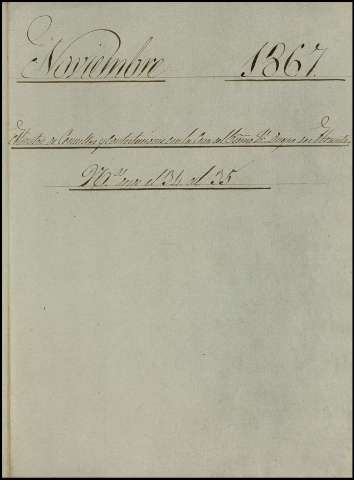 Noviembre 1867
Minutas de Consultas y Contestaciones con la Casa del Excmo Sr. Duque de Abrantes
Nº del 34 al 35